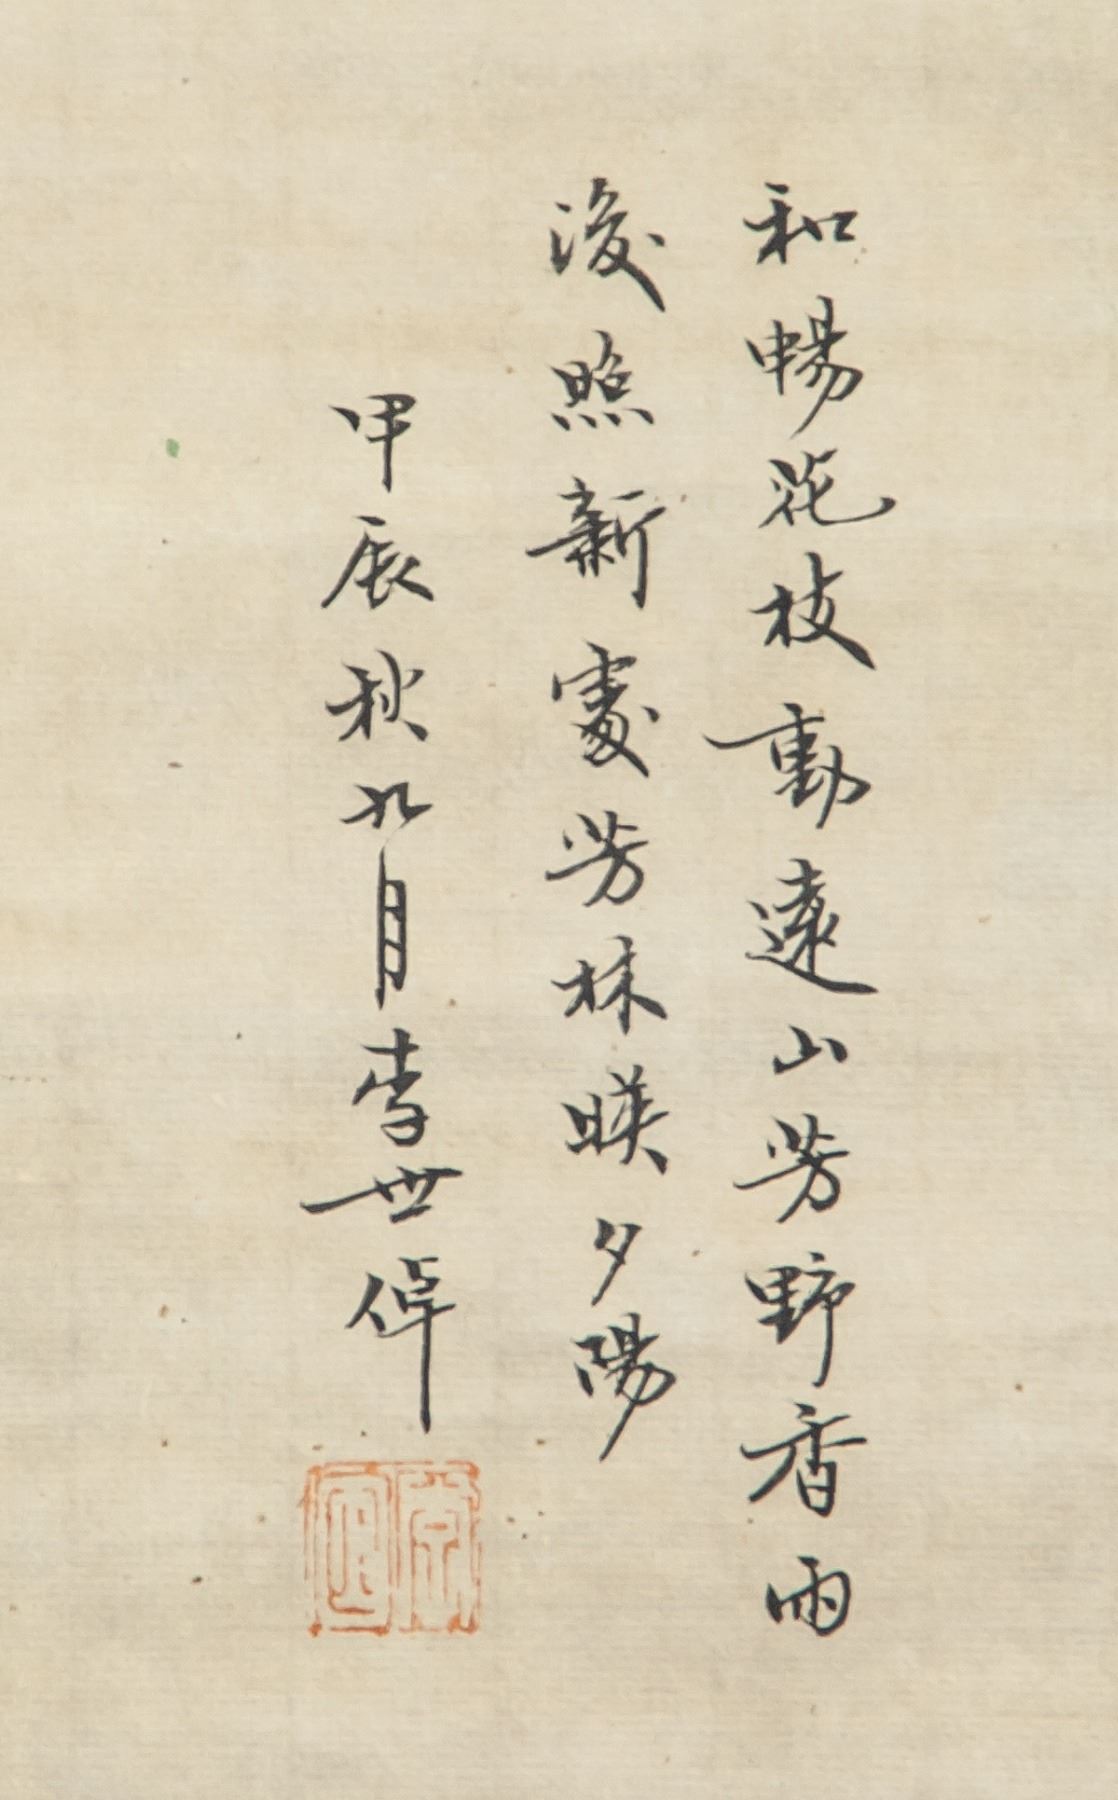 和暢花枝動遠山芳野香雨
後照新處芳林暎夕陽
甲辰秋九月李世倬